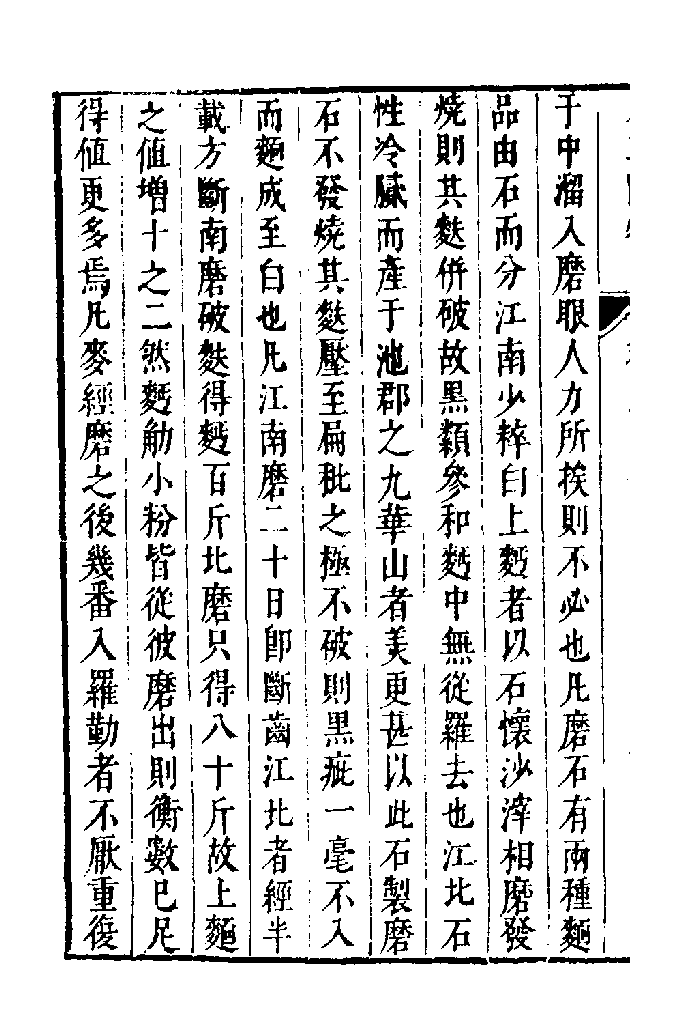 于中溜入磨眼人力所挨則不必也凡磨石有兩種麵
品由石而分江南少粹白上麪者以石懷沙滓相磨發
燒則其麩併破故黑纇參和麪中無從羅去也江北石
性冷膩而產于池郡之九華山者美更甚以此石製磨
石不發燒其麩壓至扁秕之極不破則黑疵一毫不入
而麵成至白也凡江南磨二十日卽斷齒江北者經半
載方斷南磨破麩得麪百斤北磨只得八十斤故上麵
之値增十之二然麪觔小粉皆從彼磨出則衡數已足
得値更多焉凡麥經磨之後幾番入羅勤者不厭重復